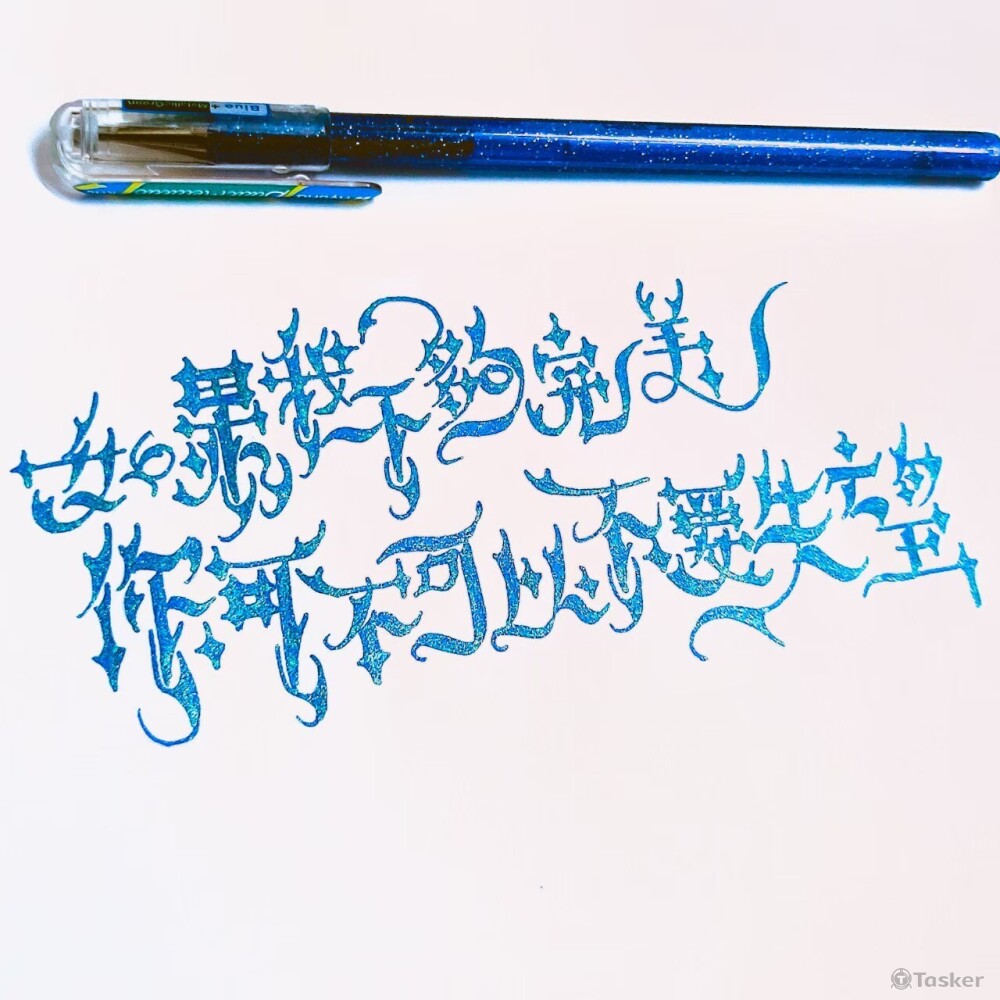 Blue + MetallicGreen
Hybrid Dual Metallic
如果我不夠完美
你可不可以不要失望
Tasker